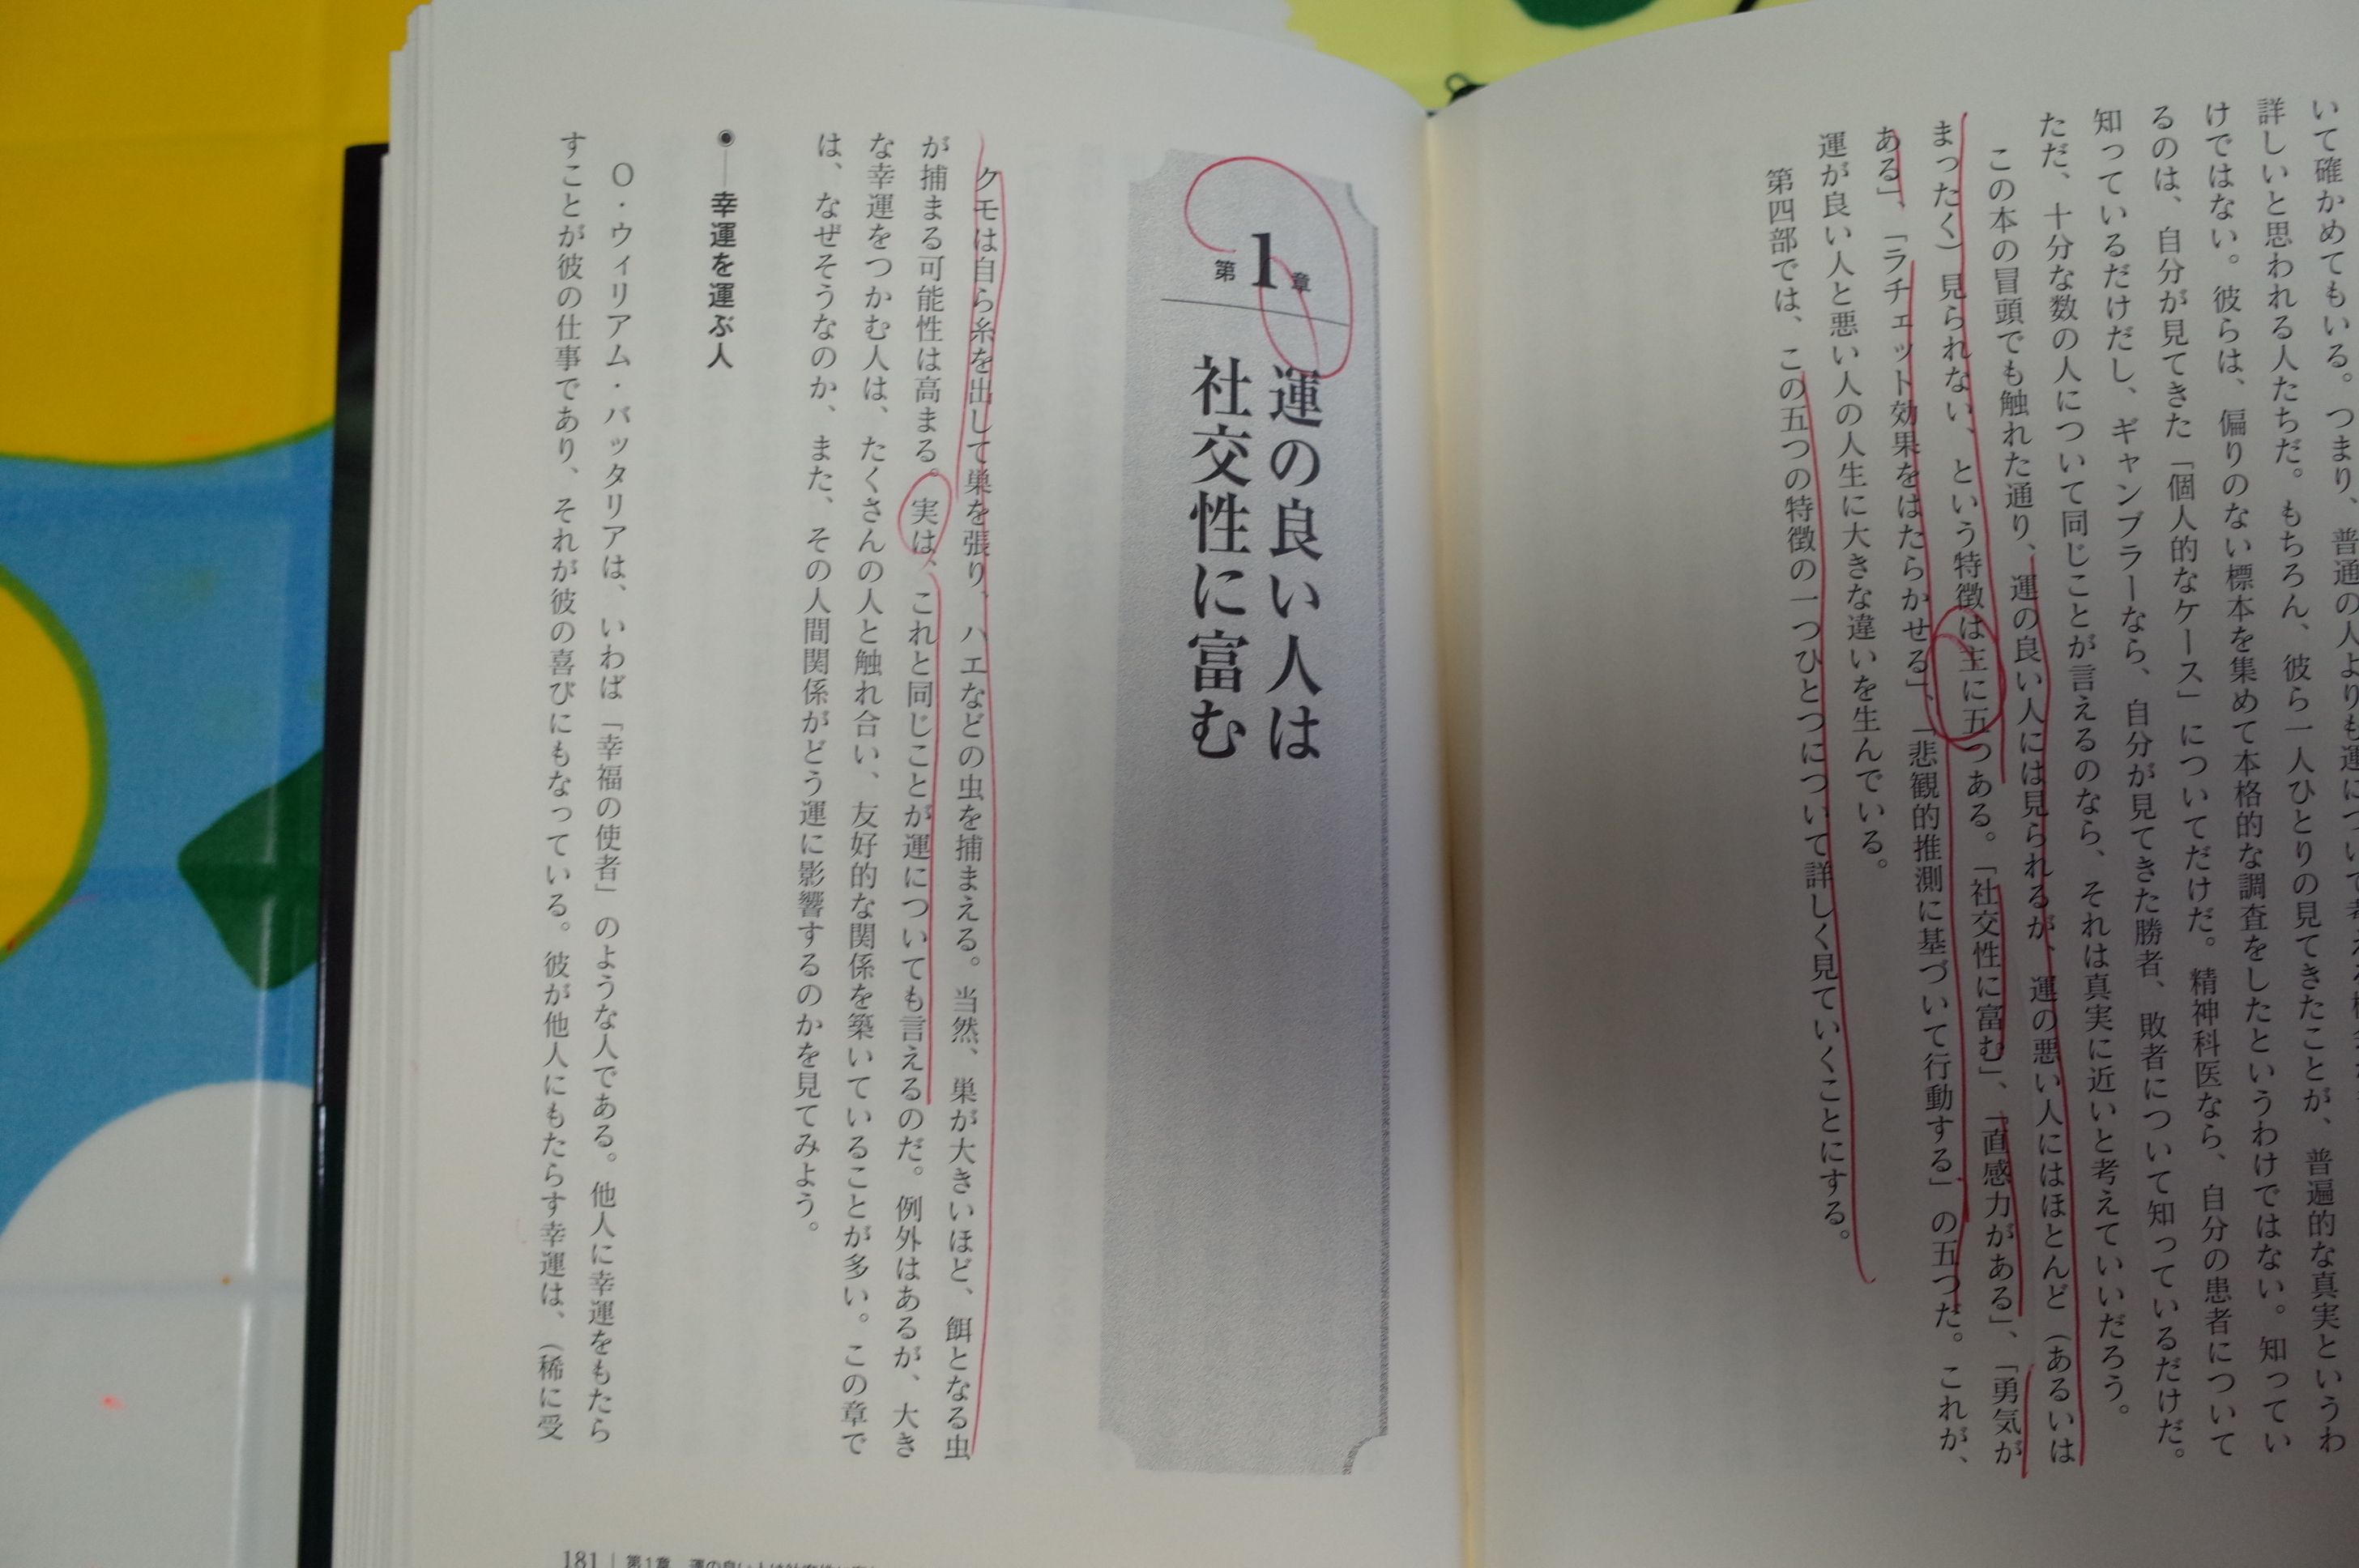 いて確かめてもいる。つまり、普通の人よりも運について考える
詳しいと思われる人たちだ。もちろん、彼ら一人ひとりの見てきたことが、普遍的な真実というわ
けではない。彼らは、偏りのない標本を集めて本格的な調査をしたというわけではない。知ってい
るのは、自分が見てきた「個人的なケース」についてだけだ。精神科医なら、自分の患者について
知っているだけだし、ギャンブラーなら、自分が見てきた勝者、敗者について知っているだけだ。
ただ、十分な数の人について同じことが言えるのなら、それは真実に近いと考えていいだろう。
この本の冒頭でも触れた通り、運の良い人には見られるが、運の悪い人にはほとんど(あるいは
まったく)見られない、という特徴は主に五つある。「社交性に富む」、「直感力がある」、「勇気が
ある」、「ラチェット効果をはたらかせる」、「悲観的推測に基づいて行動する」の五つだ。これが、
運が良い人と悪い人の人生に大きな違いを生んでいる。
第四部では、この五つの特徴の一つひとつについて詳しく見ていくことにする。
第1章
運の良い人は
社交性に富む
クモは自ら糸を出して巣を張り、ハエなどの虫を捕まえる。当然、巣が大きいほど、餌となる虫
が捕まる可能性は高まる。実は、これと同じことが運についても言えるのだ。例外はあるが、大き
な幸運をつかむ人は、たくさんの人と触れ合い、友好的な関係を築いていることが多い。この章で
は、なぜそうなのか、また、その人間関係がどう運に影響するのかを見てみよう。
◉──幸運を運ぶ人
O・ウィリアム・バッタリアは、いわば「幸福の使者」のような人である。他人に幸運をもたら
すことが彼の仕事であり、それが彼の喜びにもなっている。彼が他人にもたらす幸運は、(稀に受
181 | 第1章 運の良い人は社交性に富む